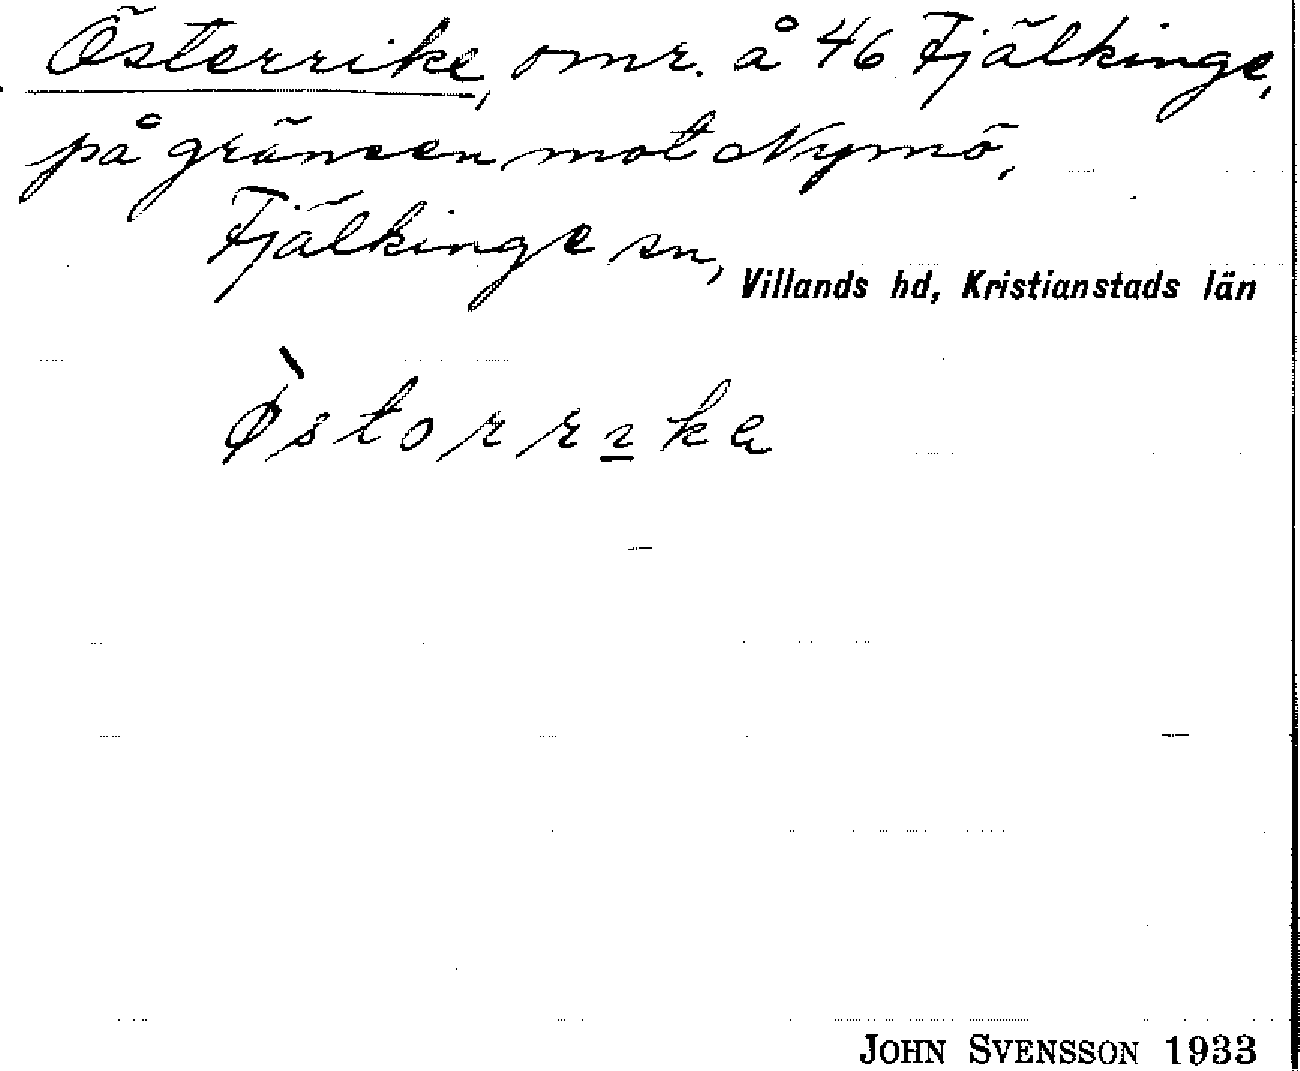 Österrike, omr. å 46 Fjälkinge,
på gränsen mot Nymö,
Fjälkinge sn, Villands hd, Kristianstads län
Ø̀storrıka
JOHN SVENSSON 1933